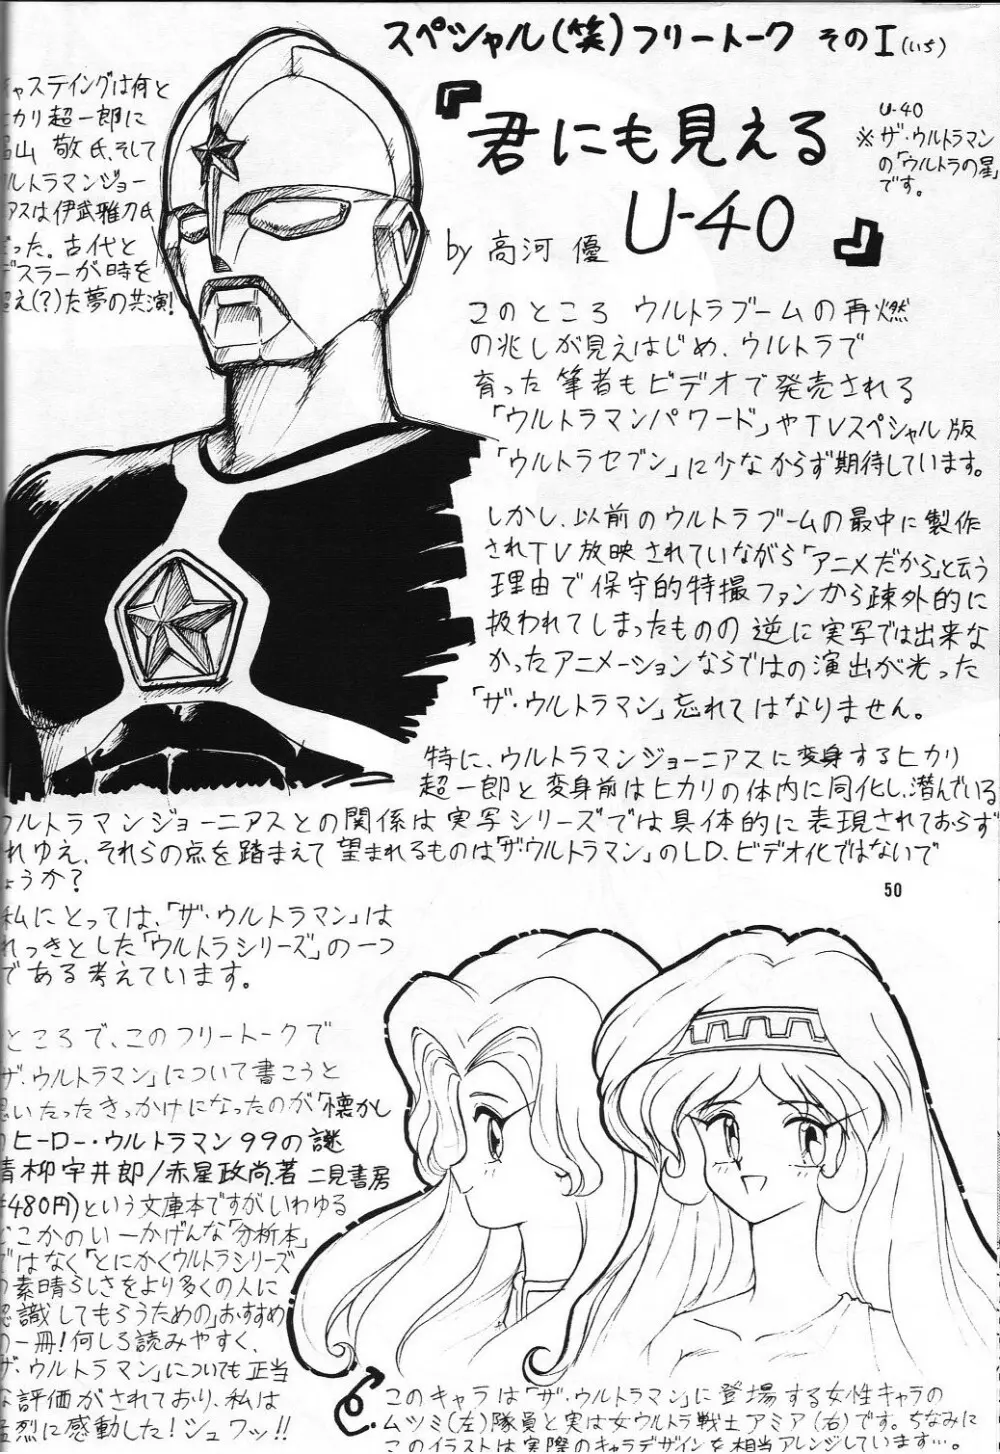 スペシャル(笑)フリートーク その1(いち)
『君にも見える
U-40』
by 高河 優
U-40
※ザ・ウルトラマン
の「ウルトラの星」
です。
キャスティングは何と
ヒカリ超一郎に
富山 敬氏、そして
ウルトラマンジョー
ニアスは伊武雅刀氏
だった。古代と
デスラーが時を
超え(?)た夢の共演!
このところ ウルトラブームの再燃
の兆しが見えはじめ、ウルトラで
育った筆者もビデオで発売される
「ウルトラマンパワード」やTVスペシャル版
「ウルトラセブン」に少なからず期待しています。
しかし、以前のウルトラブームの最中に製作
されTV放映されていながら「アニメだから」と云う
理由で保守的特撮ファンから疎外的に
扱われてしまったものの逆に実写では出来な
かったアニメーションならではの演出が光った
「ザ・ウルトラマン」忘れてはなりません。
特に、ウルトラマンジョーニアスに変身するヒカリ
超一郎と変身前はヒカリの体内に同化し、潜んでいる
ウルトラマンジョーニアスとの関係は実写シリーズでは具体的に表現されておらず
それゆえ、それらの点を踏まえて望まれるものは「ザ・ウルトラマン」のLD、ビデオ化ではないで
しょうか?
50
私にとっては、「ザ・ウルトラマン」は
れっきとした「ウルトラシリーズ」の一つ
である考えています。
ところで、このフリートークで
「ザ・ウルトラマン」について書こうと
思いたったきっかけになったのが「懐かし
のヒーロー・ウルトラマン99の謎
青柳宇井郎/赤星政尚著 二見書房
¥480円)という文庫本ですがいわゆる
どこかのいーかげんな「分析本」
ではなく「とにかくウルトラシリーズ
の素晴らしさをより多くの人に
認識してもらうための」おすすめ
の一冊!何しろ読みやすく、
「ザ・ウルトラマン」についても正当
な評価がされており、私は
猛烈に感動した!シュワッ!!
このキャラは「ザ・ウルトラマン」に登場する女性キャラの
ムツミ(左)隊員と実は女ウルトラ戦士アミア(右)です。ちなみに
このイラストは実際のキャラデザインを相当アレンジしています…。